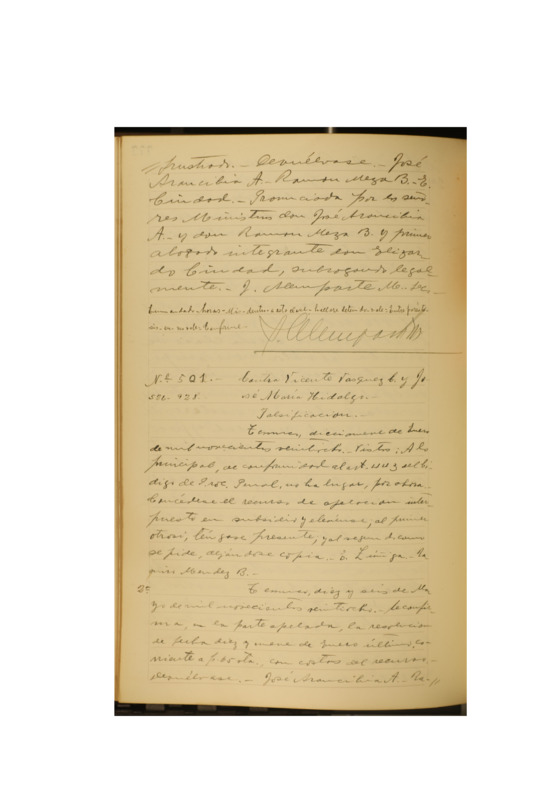 José
Arancibia A. Ramon Meza B. - E.
Ciudad. - Pronunciada por los seño-
res Ministros don José Arancibia
A. - y don Ramon Meza B. y primer
abogado integrante don Elizar-
do Ciudad, subrogando legal-
mente. - J. Alemparte M.
Enmendado
Conforme
N.º 501. - Contra Vicente Vasquez C. y Jo-
sé María Hidalgo. -
Falsificacion. -
Temuco, diecinueve de Enero
de mil novecientos veintiocho. Vistos: A lo
principal, de conformidad al art. 443 del Có-
digo de Proc. Penal, no ha lugar, por ahora.
Concédese el recurso de apelacion inter-
puesto en subsidio y elévense, al primer
otrosi, téngase presente, y al segundo como
se pide, dejándose copia. - E. Zúñiga.
Mendez B. -
2ª Temuco, diez y seis de Ma-
yo de mil novecientos veintiocho. - Se confir-
ma, en la parte apelada, la resolucion
de fecha diez y nueve de Enero último, co-
rriente a con costas del recurso.
Devuélvase. - José Arancibia A. - Ra-//